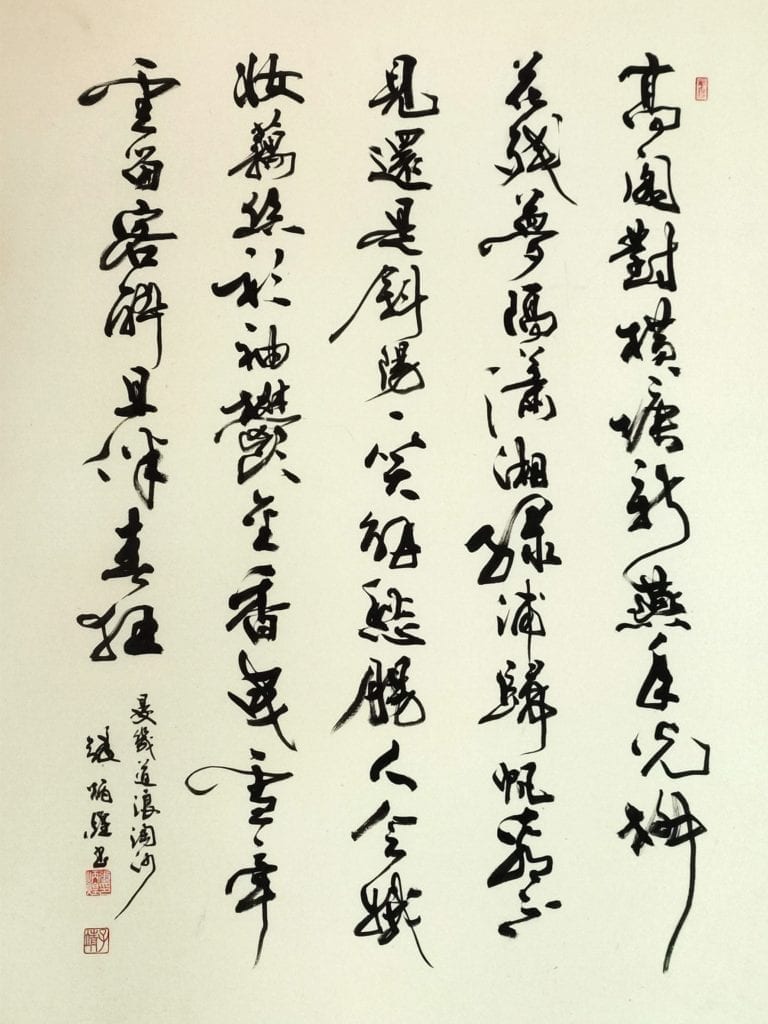 高閣對橫塘新燕年光柳
花殘夢隔瀟湘綠浦歸帆看不
見還是斜陽一笑解愁腸人會娥
妝藕絲衫袖鬱金香曳雪牽
雲留客醉且伴春狂
晏幾道浪淘沙
張炳書